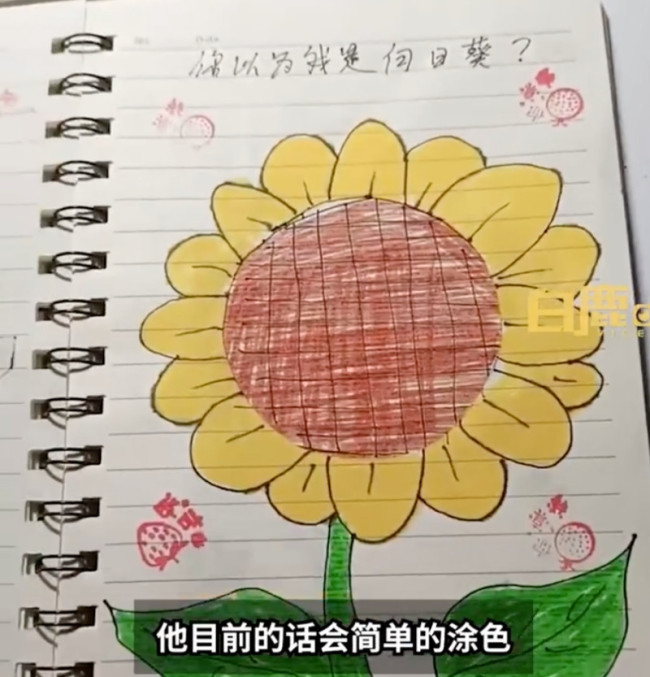 你以为我是向日葵？
白鹿
他目前的话会简单的涂色